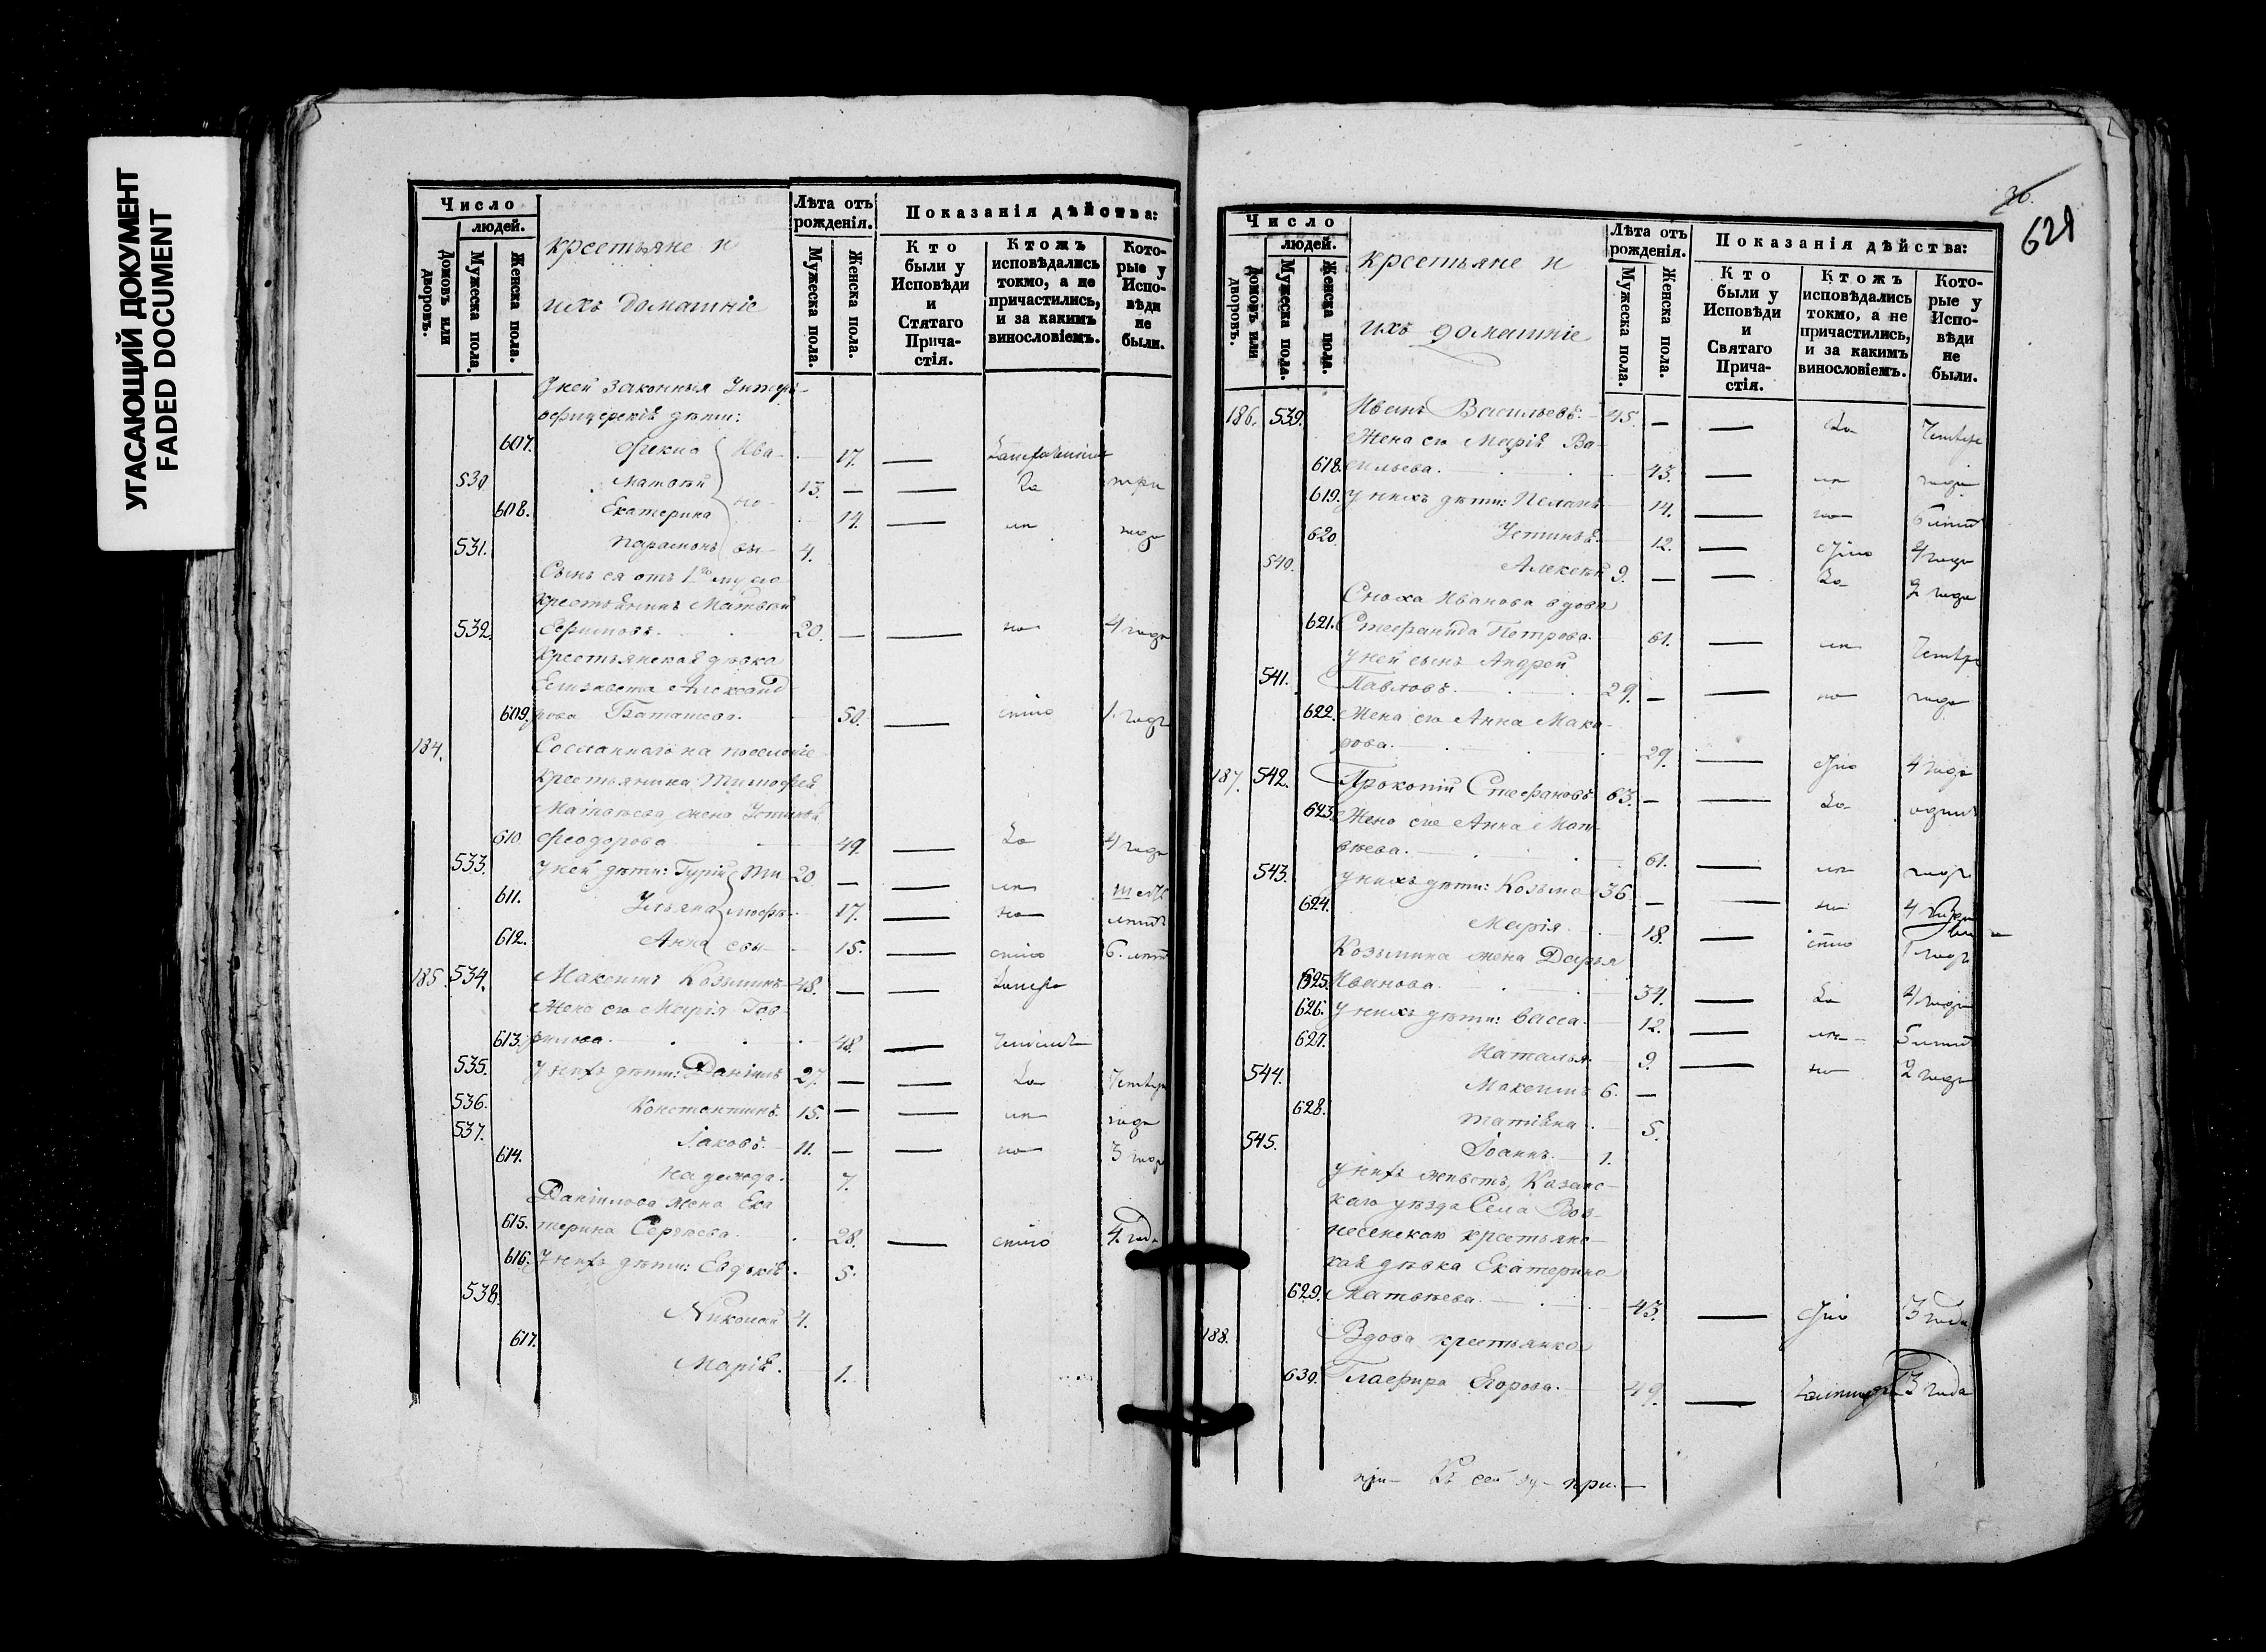 УГАСАЮЩИЙ ДОКУМЕНТ
FADED DOCUMENT
Число
людей.
Домовъ или дворовъ.
Мужеска пола.
Женска пола.
крестьяне и
ихъ домашніе
Лѣта отъ рожденія.
Мужеска пола.
Женска пола.
Показанія дѣйства:
Кто были у Исповѣди и Стятаго Прича-стія.
Ктожъ исповѣдались токмо, а не причастились, и за какимъ винословіемъ.
Кото-рые у Испо-вѣди не были.
У ней законныя Унтеръ-
офицерскіе дѣти:
607. Фекла Ива- 17. —
530 Матвѣй 13. — — За три
608. Екатерина но- 14. —
531. Парамонъ вы- 4.
Сынъ ея отъ 1го мужа
крестьянинъ Матвѣй
532. Ефимовъ. 20. — — 4 года
Крестьянская дѣвка
Елизавета Александ-
609. рова Баташева. 50. — 1. годъ
184. Сосланнаго на поселеніе
крестьянина Тимофея
Матвѣева жена Устинья
610. Феодорова 49. — За 4 года
533. У ней дѣти: Гурій Ти 20. — —
611. Ульяна мофѣ- 17. —
612. Анна евы- 15. — 6. лѣтъ
185. 534. Максимъ Козьминъ 48. — —
Жена его Марія Гав-
613. рилова. 48. —
535. У нихъ дѣти: Даніилъ 27. — — За
536. Константинъ. 15. — — года
537. Іаковъ. 11. — — 3 года
614. Надежда. 7.
Даніилова жена Ека
615. терина Сергѣева. 28. — 4. года
616. У нихъ дѣти: Евдокія. 5.
538. Николай 4.
617. Марія. 1.
30.
629
Число
людей.
Домовъ или дворовъ.
Мужеска пола.
Женска пола.
крестьяне и
ихъ домашніе
Лѣта отъ рожденія.
Мужеска пола.
Женска пола.
Показанія дѣйства:
Кто были у Исповѣди и Святаго Прича-стія.
Ктожъ исповѣдались токмо, а не причастились, и за какимъ винословіемъ.
Кото-рые у Испо-вѣди не были.
186. 539. Иванъ Васильевъ. 45. — — За
Жена его Марія Ва-
618. сильева. 43. — года
619. У нихъ дѣти: 14. — 6 лѣтъ
620. Устинья. 12. — 4 года
540. Алексѣй 9. — — За 2 года
Сноха Иванова вдова
621. Стефанида Петрова. 61. —
У ней сынъ Андрей
541. Павловъ. 29. — — года
622. Жена его Анна Мака-
рова. 29. — 4 года
187. 542. Прокопій Стефановъ 63. — — За одинъ
623. Жена его Анна Мат-
вѣева. 61. — годъ
543. У нихъ дѣти: Козьма 36. — — 4 года
624. Марія. 18. — 1 годъ
Козьмина жена Дарья
625. Иванова. 34. — За 4 года
626. У нихъ дѣти: Васса. 12. — 5 лѣтъ
627. Наталья. 9. — 2 года
544. Максимъ 6. —
628. Татіана. 5.
545. Іоаннъ. 1.
У нихъ живетъ, Казанс-
каго уѣзда Села Воз-
несенскаго крестьянс-
кая дѣвка Екатерина
629. Матвѣева. 43. — 3 года
188. Вдова крестьянка
630. Глафира Егорова. 49. — 3 года
Къ сей при-